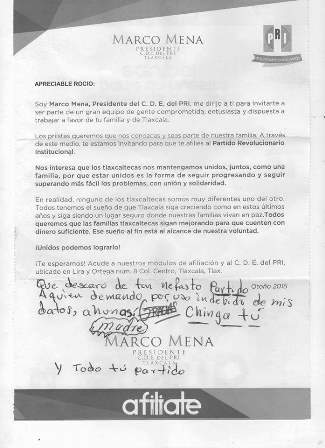 MARCO MENA
PRESIDENTE
C.D.E. DEL PRI
TLAXCALA
PRI
APRECIABLE ROCIO:
Soy Marco Mena, Presidente del C. D. E. del PRI, me dirijo a ti para invitarte a
ser parte de un gran equipo de gente comprometida, entusiasta y dispuesta a
trabajar a favor de tu familia y de Tlaxcala.
Los priistas queremos que nos conozcas y seas parte de nuestra familia. A través
de este medio, te estamos invitando para que te afilies al Partido Revolucionario
Institucional.
Nos interesa que los tlaxcaltecas nos mantengamos unidos, juntos, como una
familia, por que estar unidos es la forma de seguir progresando y seguir
superando más fácil los problemas, con unión y solidaridad.
En realidad, ninguno de los tlaxcaltecas somos muy diferentes uno del otro.
Todos tenemos el sueño de que Tlaxcala siga creciendo como en estos últimos
años y siga siendo un lugar seguro donde nuestras familias vivan en paz. Todos
queremos que las familias tlaxcaltecas sigan mejorando para que cuenten con
dinero suficiente. Ese sueño al fin está al alcance de nuestra voluntad.
¡Unidos podemos lograrlo!
¡Te esperamos! Acude a nuestros módulos de afiliación y al C. D. E. del PRI,
ubicado en Lira y Ortega num. 8 Col. Centro, Tlaxcala, Tlax.
Que descaro de tan nefasto Partido Otoño 2015
Aquien demando, por uso indebido de mis
datos, ahunas Chinga tú
madre
MARCO MENA
PRESIDENTE
C.D.E. DEL PRI
TLAXCALA
Y Todo tú partido
afíliate